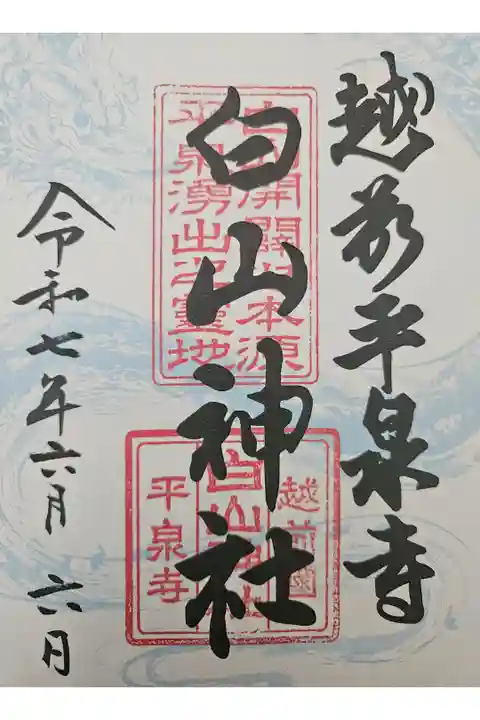 越前平泉寺
白山神社
令和七年六月六日
白山開闢日本源
平泉湧出之靈地
越前國
白山神社
平泉寺